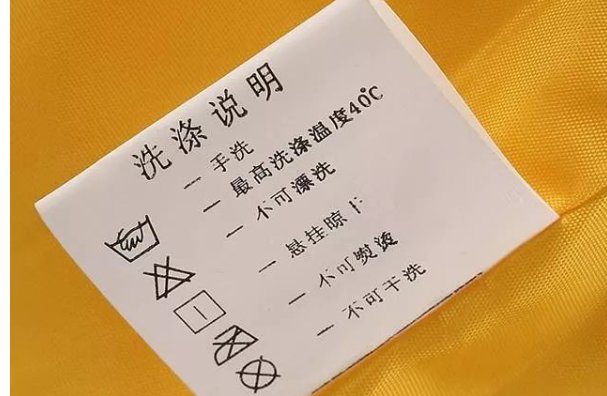 洗涤说明
一 手洗
一 最高洗涤温度40℃
一 不可漂洗
一 悬挂晾干
一 不可熨烫
一 不可干洗